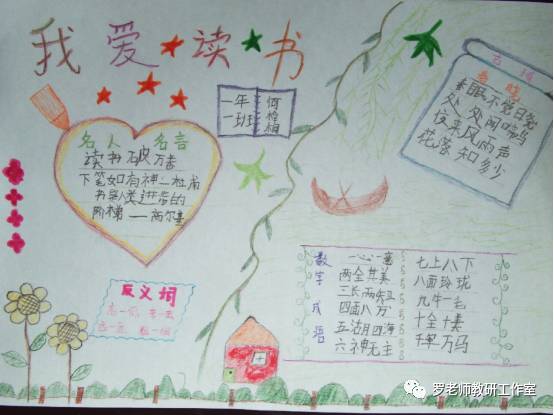 我爱读书
一年
一班
名人名言
读书破万卷
下笔如有神—杜甫
书是人类进步的
阶梯——高尔基
古诗
春晓
春眠不觉日尧
处处闻啼鸟
夜来风雨声
花落知多少
反义词
数字成语
一心一意
两全其美
三长两短
四面八方
五湖四海
六神无主
七上八下
八面玲珑
九牛一毛
十全十美
千军万马
罗老师教研工作室